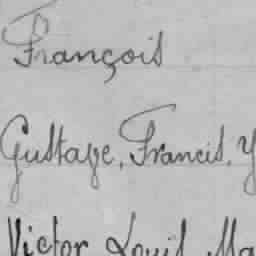 François
Gustave, Francis, Y
Victor Louis Ma